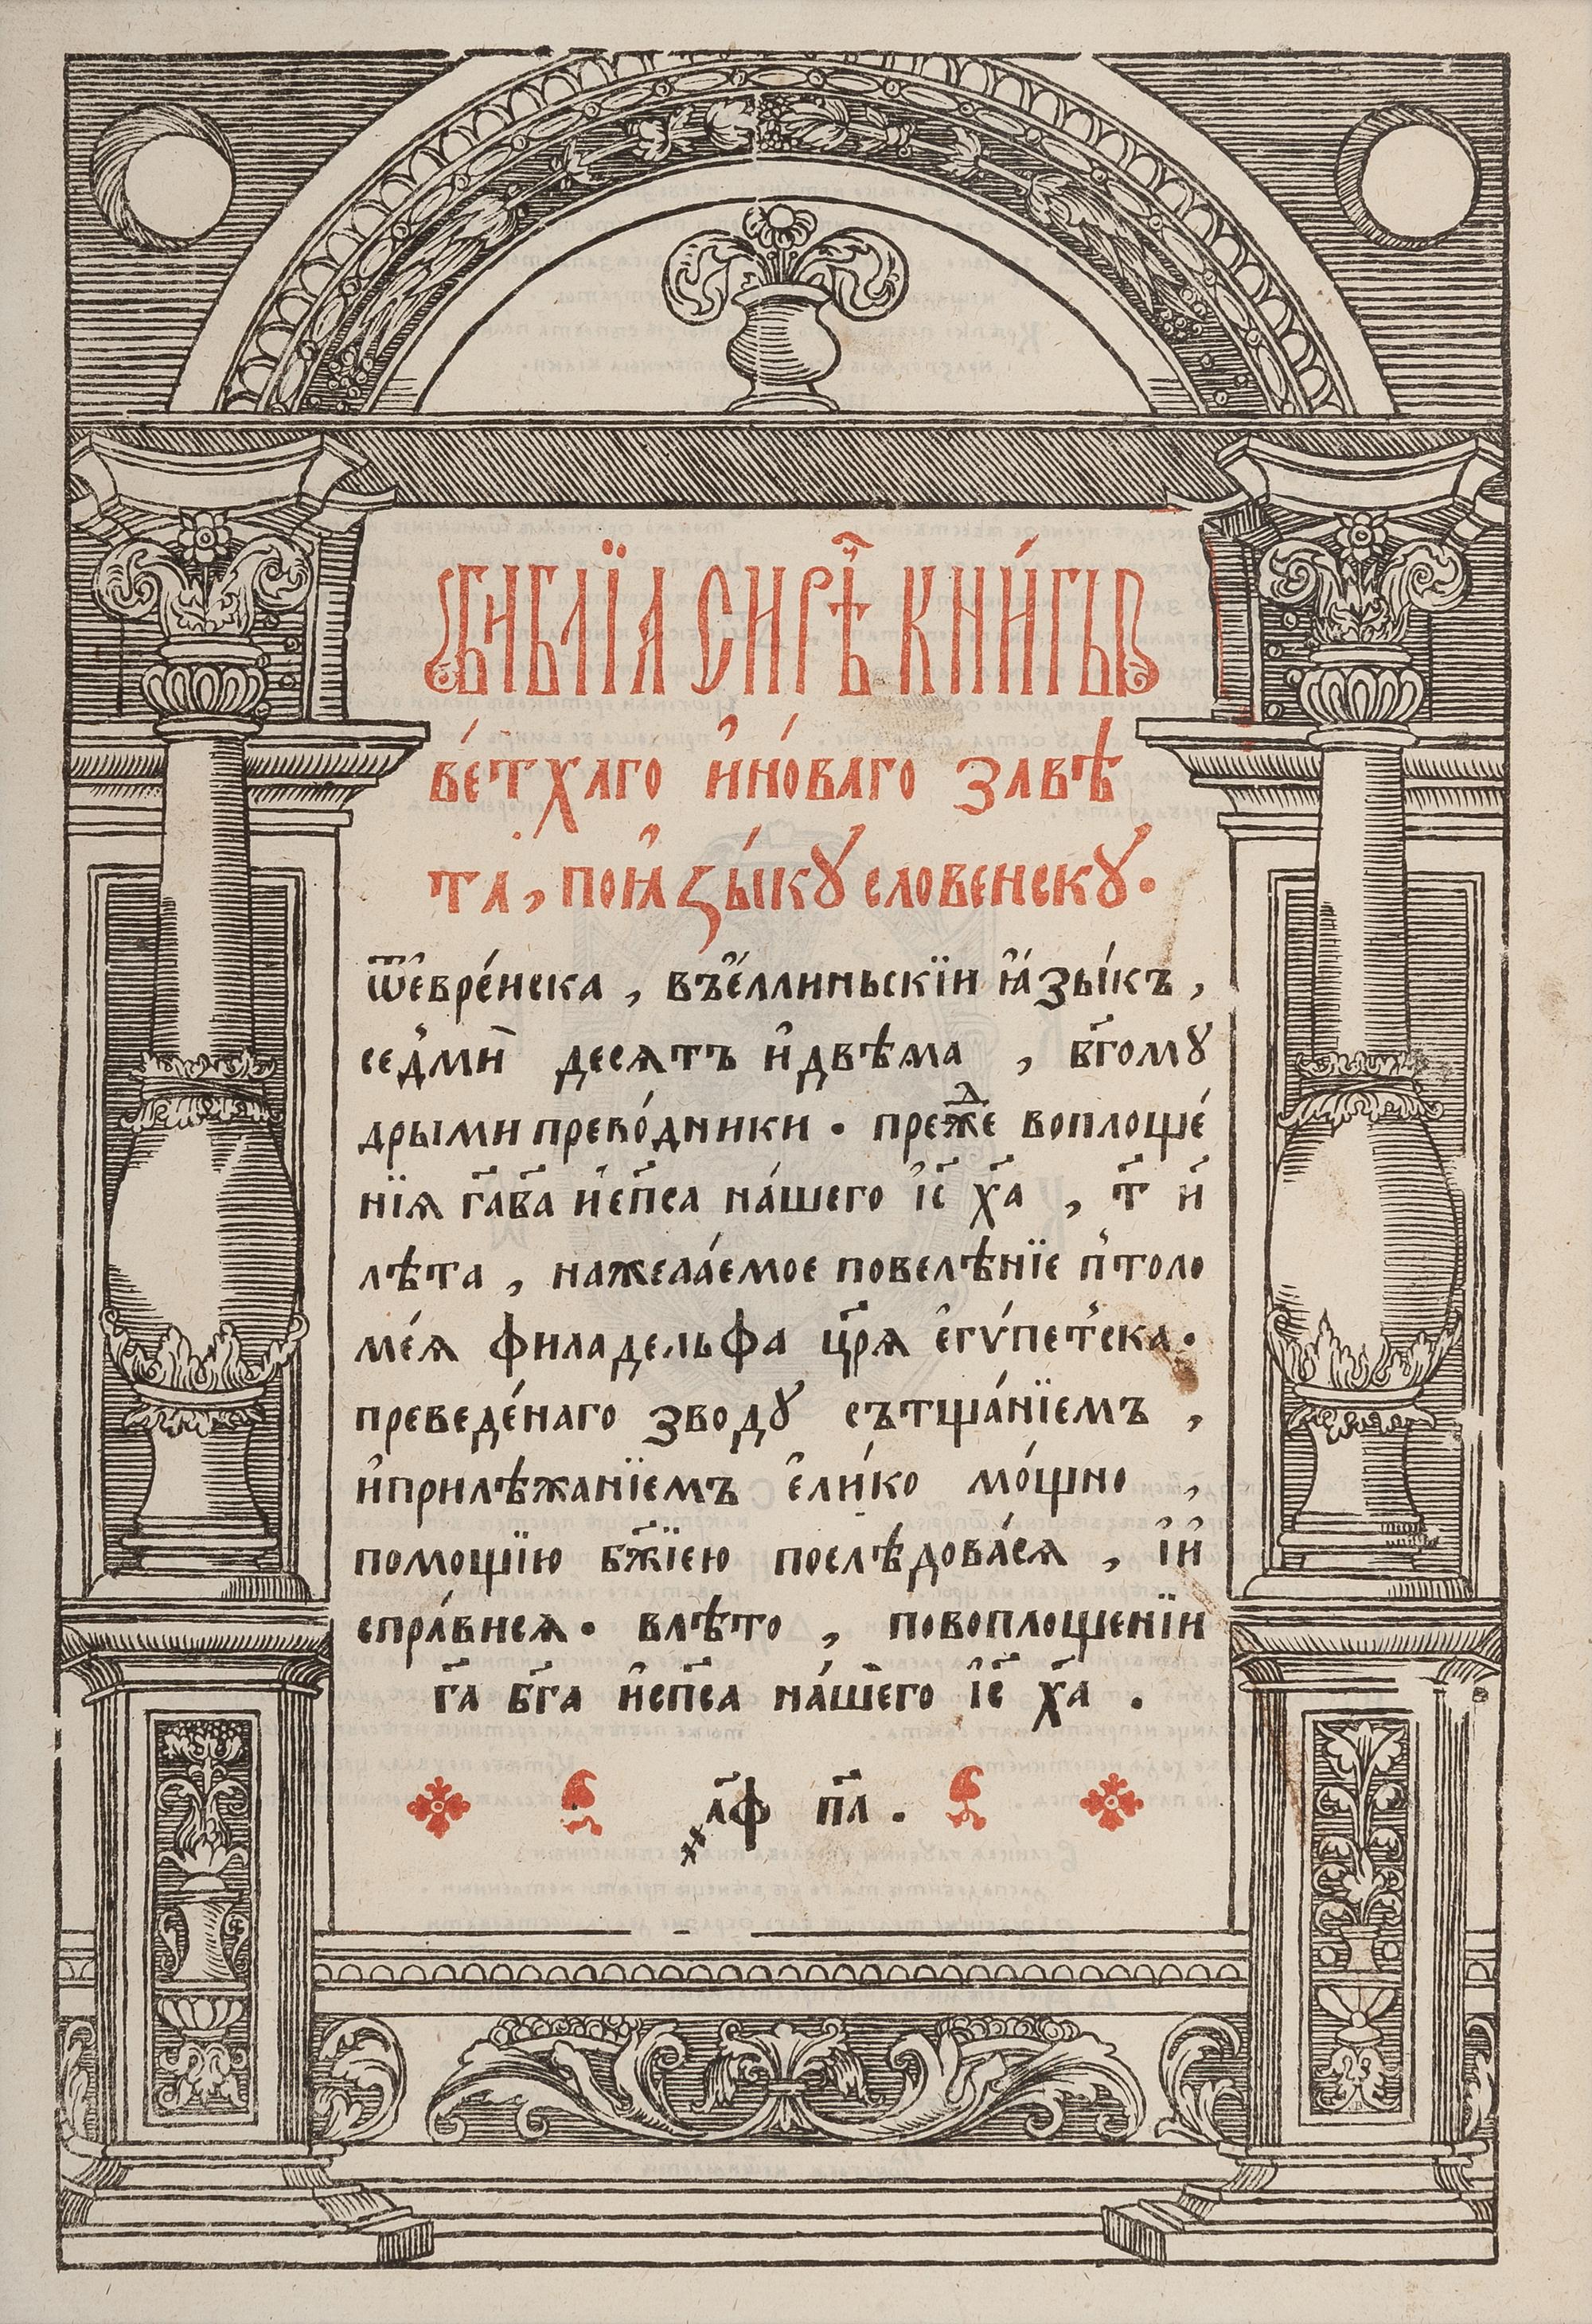 БИБЛЇА СИРѢ҃Ч КНИ́ГЫ
ве́тхаго и҆но́ваго завѣ
та, поꙗ҆зы́кꙋ словенскꙋ.
ѿе҆вре́нска, въе҆́ллиньскїи ꙗ҆зы́къ,
седми҃ десѧтъ и҆двѣма, бг҃омꙋ
дрыми прево́дники. преж̾ⷣе воплоще́
нїѧ гл҃ва и҆сп҃са на́шего і҆с҃ хⷭ҇а, т҃ и҆
лѣта, нажелаемое повелѣнїе п̾толо
ме́ѧ филадельфа цр҃ѧ е҆гѵ́пет̾ска.
преведе́наго зводꙋ сътща́нїемъ,
и҆прилѣжанїемъ е҆ли́ко мо́щно,
помощїю бж҃їею послѣдова́сѧ, і҆и҆
спра́висѧ. влѣто, повоплощенїи
га҃ бг҃а и҆сп҃са на́шего і҆с҃ хⷭ҇а.
҂аф҃ п҃а.